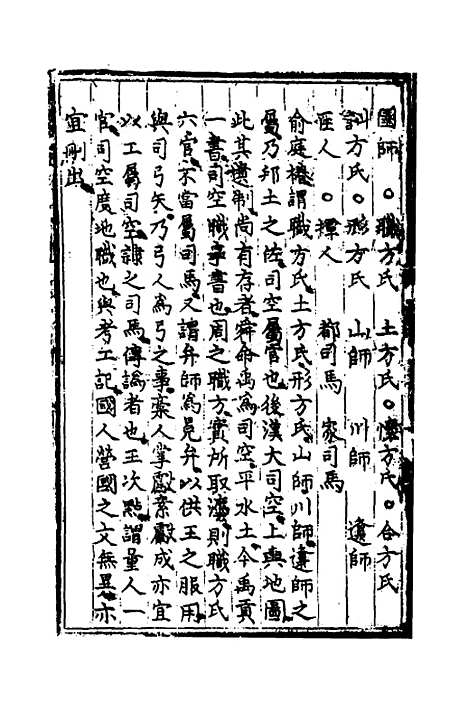 圉師　○職方氏　土方氏○懷方氏○合方氏
訓方氏○形方氏　山師　川師　邍師
匡人　○撢人　都司馬　家司馬
俞庭椿謂職方氏土方氏形方氏山師川師邍師之
屬乃邦土之佐司空屬官也後漢大司空上輿地圖
此其遺制尚有存者舜命禹為司空平水土今禹貢
一書司空職事書也周之職方實所取灋則職方氏
六官不當屬司馬又謂弁師為冕弁以供王之服用
與司弓矢乃弓人為弓之事槀人掌獻素獻成亦宜
以工屬司空隸之司馬傳譌者也王次點謂量人一
官司空度地職也與考工記國人營國之文無異亦
宜刪出